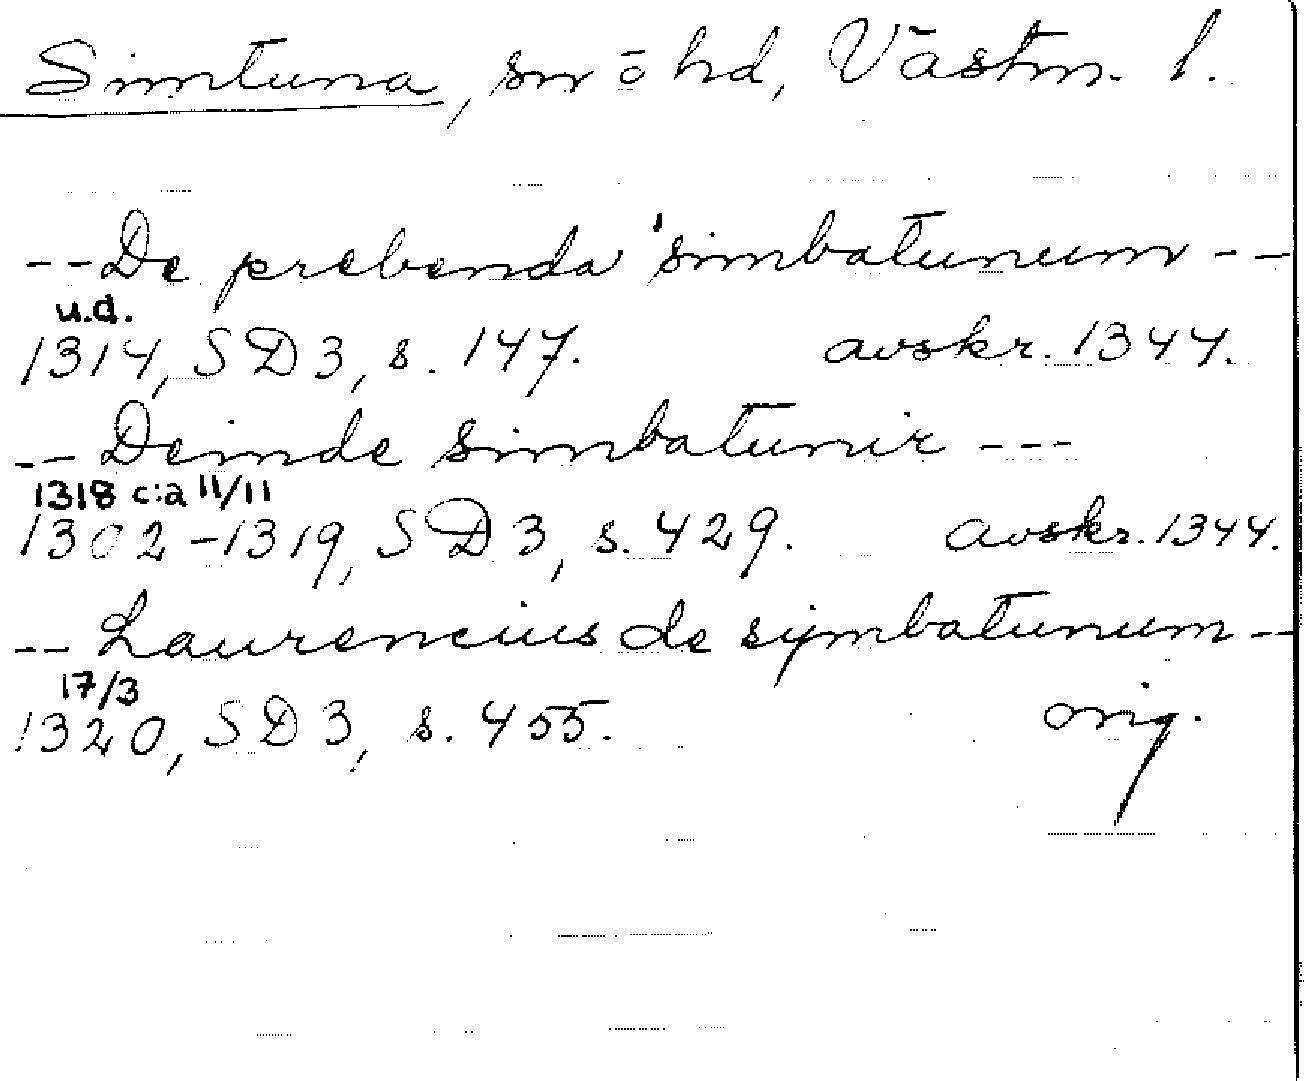 Simtuna, sn ō hd, Västm. l.
-- De prebenda 'simbatunum --
u.d.
1314, SD 3, s. 147. avskr. 1344.
-- Deinde simbatunir ---
1318 c:a 11/11
1302-1319, SD 3, s. 429. avskr. 1344.
-- Laurencius de symbatunum --
17/3
1320, SD 3, s. 455. orig.